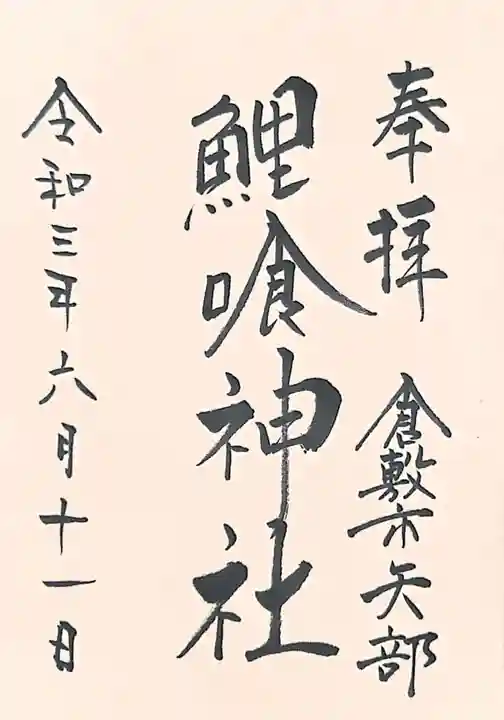 奉拝　倉敷市矢部
鯉喰神社
令和三年六月十一日